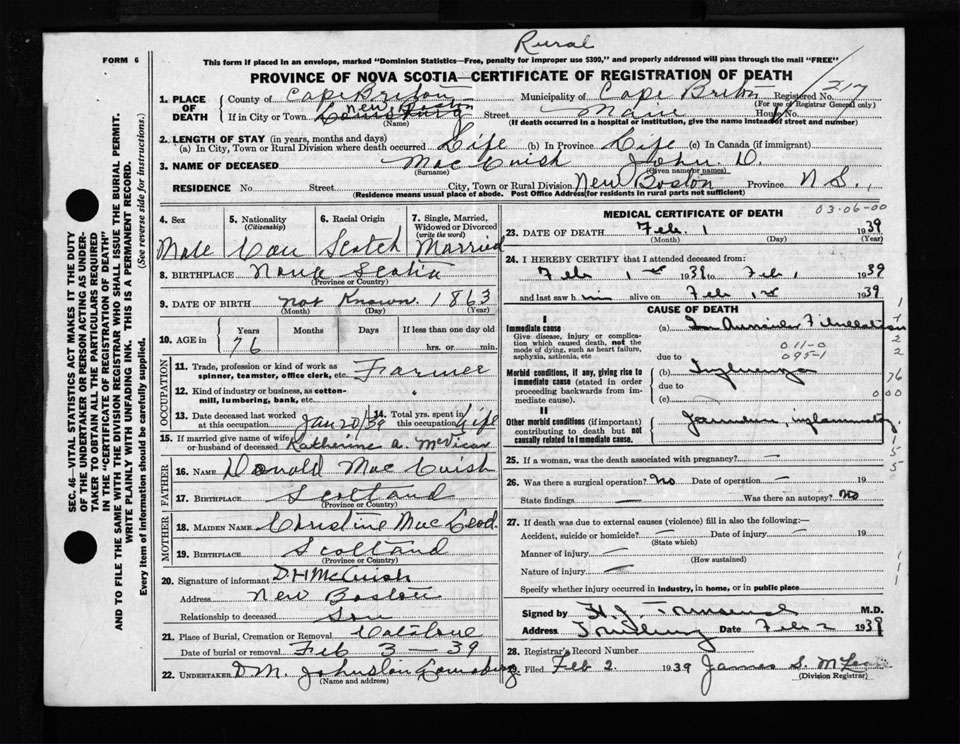 Rural
FORM 6
This form if placed in an envelope, marked "Dominion Statistics—Free, penalty for improper use $300," and properly addressed will pass through the mail "FREE"
PROVINCE OF NOVA SCOTIA—CERTIFICATE OF REGISTRATION OF DEATH
217
1. PLACE OF DEATH
County of Cape Breton Municipality of Cape Breton Registered No.
(For use of Registrar General only)
New Boston
If in City or Town Louisburg Street Main House No.
(Name) (If death occurred in a hospital or institution, give the name instead of street and number)
2. LENGTH OF STAY (in years, months and days)
(a) In City, Town or Rural Division where death occurred Life (b) In Province Life (c) In Canada (if immigrant)
3. NAME OF DECEASED Mac Cuish John D.
(Surname) (Given name or names)
RESIDENCE No. Street City, Town or Rural Division New Boston Province N S.
(Residence means usual place of abode. Post Office Address for residents in rural parts not sufficient)
SEC. 46—VITAL STATISTICS ACT MAKES IT THE DUTY
OF THE UNDERTAKER OR PERSON ACTING AS UNDER-
TAKER TO OBTAIN ALL THE PARTICULARS REQUIRED
IN THE "CERTIFICATE OF REGISTRATION OF DEATH"
AND TO FILE THE SAME WITH THE DIVISION REGISTRAR WHO SHALL ISSUE THE BURIAL PERMIT.
WRITE PLAINLY WITH UNFADING INK. THIS IS A PERMANENT RECORD.
Every item of Information should be carefully supplied. (See reverse side for instructions.)
4. Sex
5. Nationality
(Citizenship)
6. Racial Origin
7. Single, Married,
Widowed or Divorced
(write the word)
Male Can Scotch Married
8. BIRTHPLACE Nova Scotia
(Province or Country)
9. DATE OF BIRTH not known 1863
(Month) (Day) (Year)
10. AGE in
Years Months Days If less than one day old
76 hrs. or min.
OCCUPATION
11. Trade, profession or kind of work as
spinner, teamster, office clerk, etc. Farmer
12. Kind of industry or business, as cotton-
mill, lumbering, bank, etc.
13. Date deceased last worked
at this occupation Jan 20/39
14. Total yrs. spent in
this occupation Life
15. If married give name of wife
or husband of deceased Katherine A.
FATHER
16. NAME Donald Mac Cuish
17. BIRTHPLACE Scotland
(Province or Country)
MOTHER
18. MAIDEN NAME Christine Mac Leod.
19. BIRTHPLACE Scotland
(Province or Country)
20. Signature of informant D H McCuish
Address New Boston
Relationship to deceased Son
21. Place of Burial, Cremation or Removal Catalone
Date of burial or removal Feb 3 — 39
22. UNDERTAKER D. M. Johnston Louisburg
(Name and address)
MEDICAL CERTIFICATE OF DEATH
03-06-00
23. DATE OF DEATH Feb. 1 1939
(Month) (Day) (Year)
24. I HEREBY CERTIFY that I attended deceased from:
Feb 1st 1939 to Feb 1 1939
and last saw him alive on Feb 1st 1939
CAUSE OF DEATH
I
Immediate cause
Give disease, injury or complica-
tion which caused death, not the
mode of dying, such as heart failure,
asphyxia, asthenia, etc
(a) Auricular Fibrillation
011-0
095-1
due to
Morbid conditions, if any, giving rise to
immediate cause (stated in order
proceeding backwards from im-
mediate cause).
(b) Influenza
due to
(c)
II
Other morbid conditions (if important)
contributing to death but not
causally related to immediate cause.
Jaundice, inflammatory
1
7
2
2
76
000
1
5
5
25. If a woman, was the death associated with pregnancy? —
26. Was there a surgical operation? No Date of operation — 19
State findings — Was there an autopsy? No
27. If death was due to external causes (violence) fill in also the following:—
Accident, suicide or homicide? — Date of injury — 19
(State which)
Manner of injury —
(How sustained)
Nature of injury —
1
1
1
Specify whether injury occurred in industry, in home, or in public place
Signed by H. J. Townsend M.D.
Address Louisburg Date Feb 2 1939
28. Registrar's Record Number
Filed Feb 2. 1939 James S. McLean
(Division Registrar)